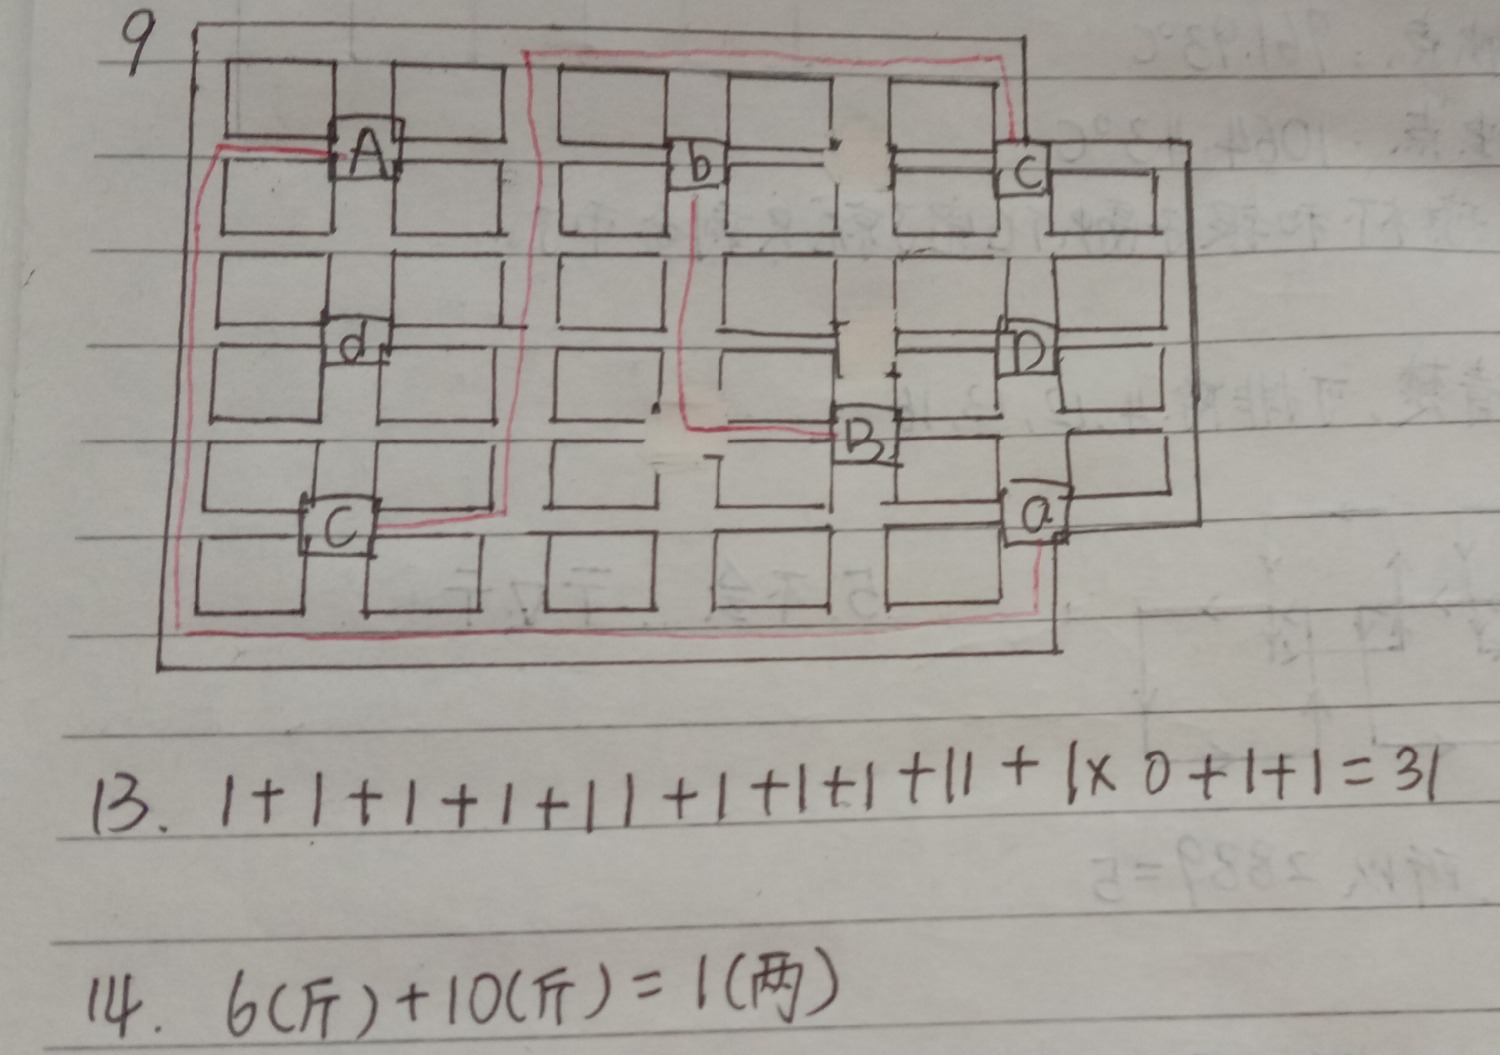 9
A b c
d D
B
C a
13. 1+1+1+1+11+1+1+1+11+1×0+1+1=31
14. 6(斤)+10(斤)=1(两)